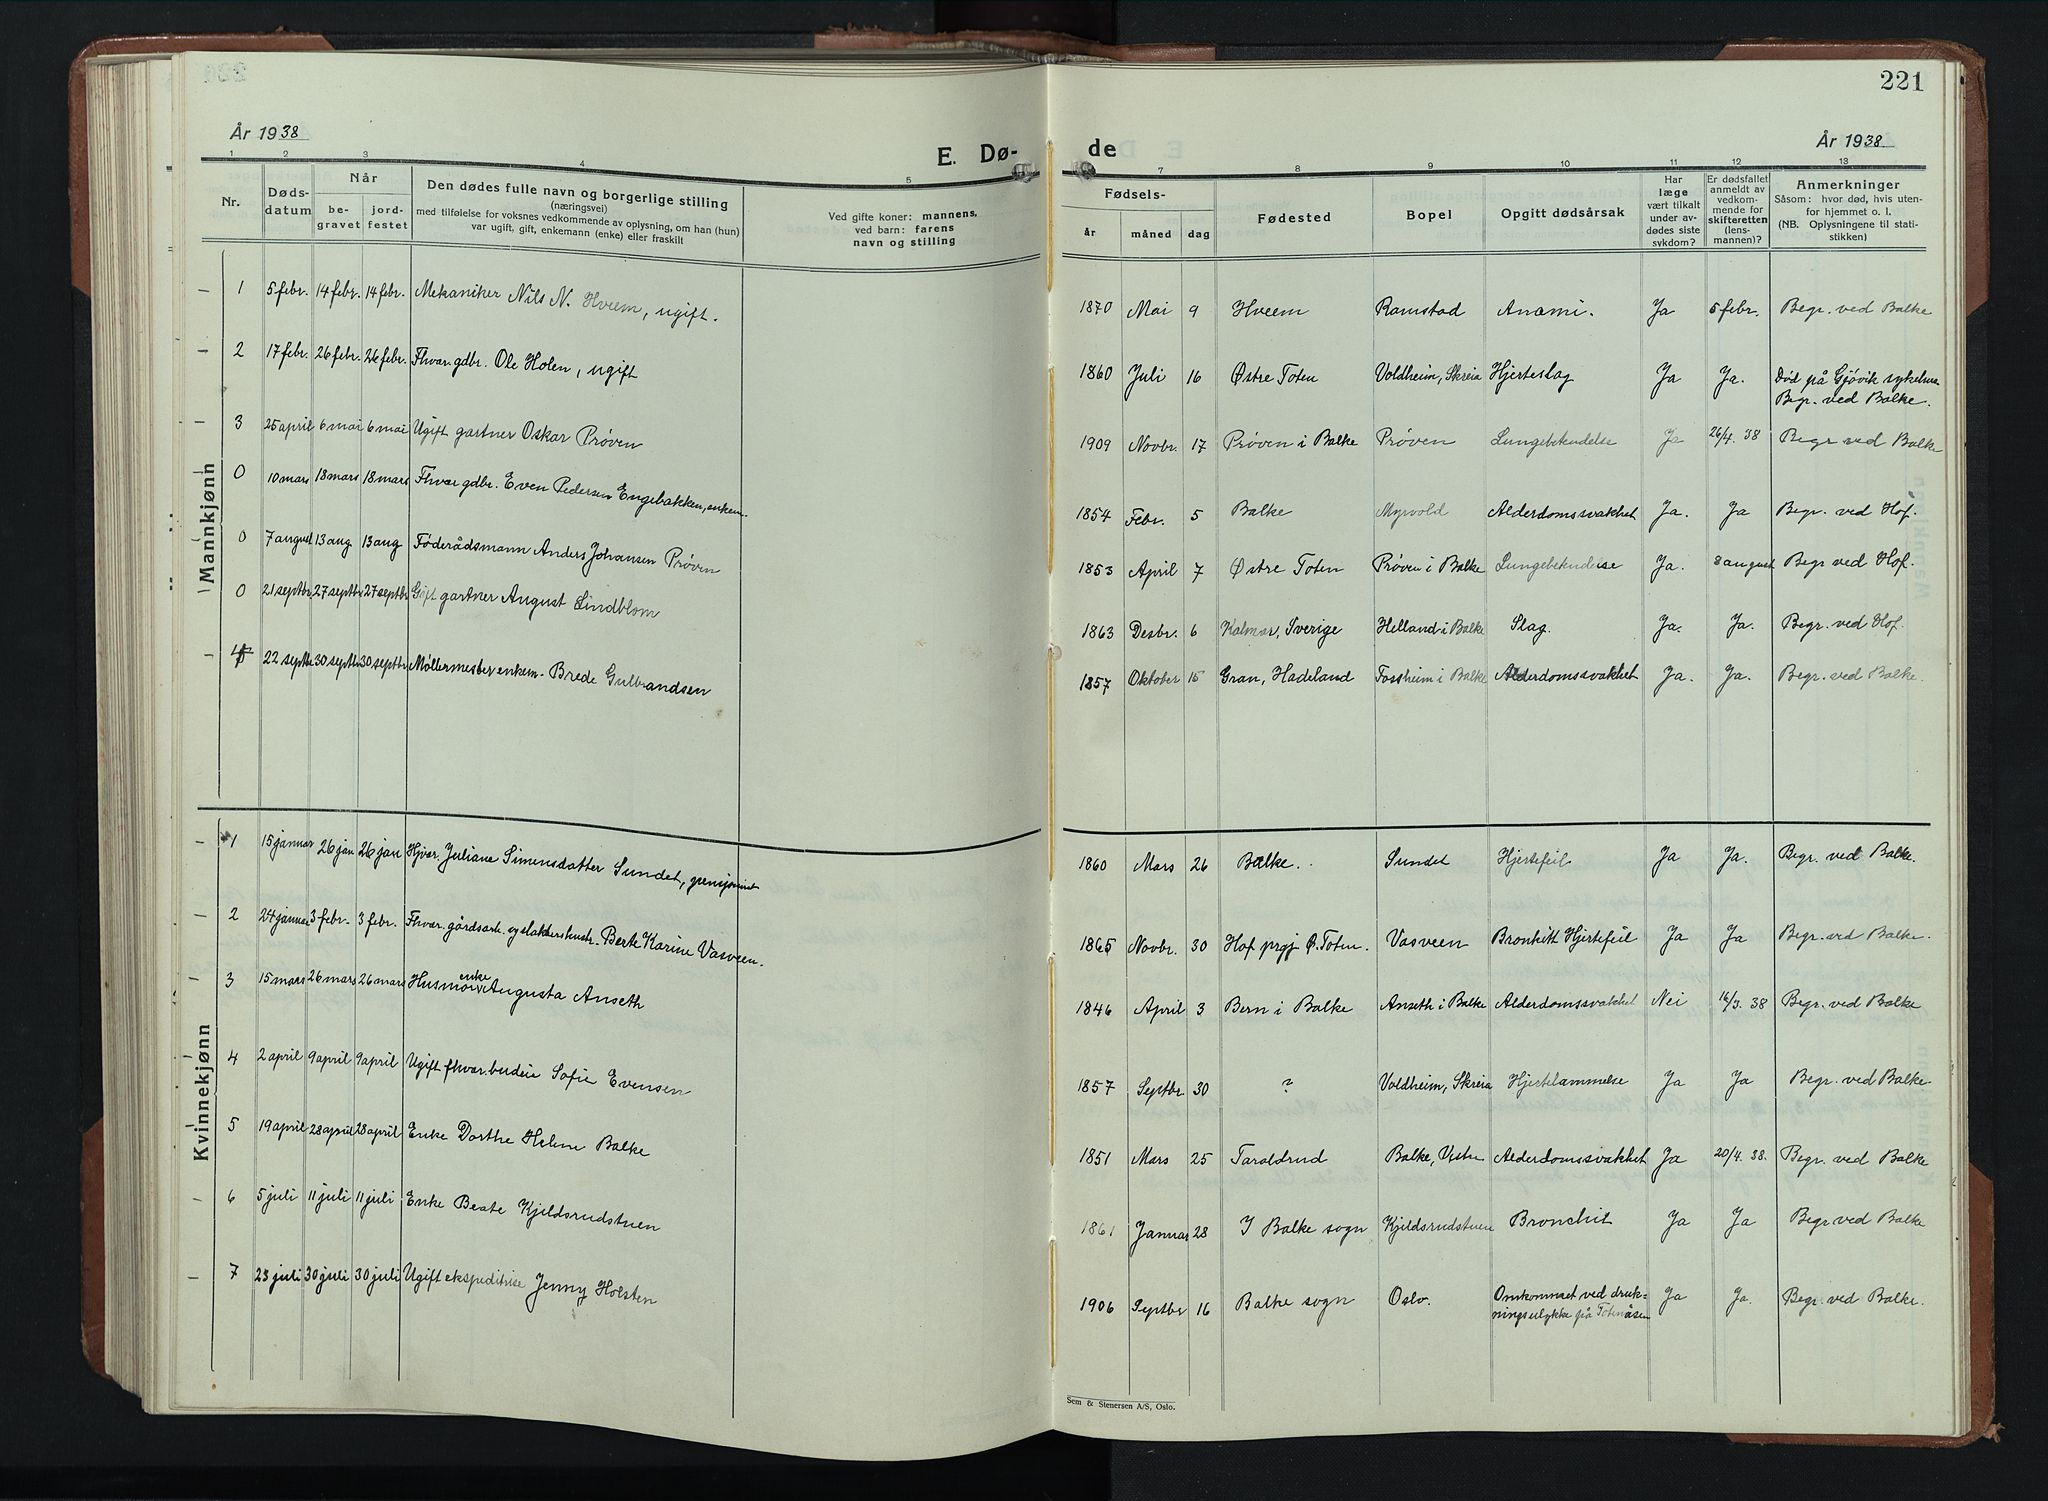 221
År 1938
E. Dø-
de
År 1938
1 2 3 4 5 7 8 9 10 11 12 13
Nr.
Døds-
datum
Når
be-
gravet
jord-
festet
Den dødes fulle navn og borgerlige stilling
(næringsvei)
med tilføielse for voksnes vedkommende av oplysning, om han (hun)
var ugift, gift, enkemann (enke) eller fraskilt
Ved gifte koner: mannens,
ved barn: farens
navn og stilling
Fødsels-
år måned dag
Fødested
Bopel
Opgitt dødsårsak
Har
læge
vært tilkalt
under av-
dødes siste
sykdom?
Er dødsfallet
anmeldt av
vedkom-
mende for
skifteretten
(lens-
mannen)?
Anmerkninger
Såsom: hvor død, hvis uten-
for hjemmet o. l.
(NB. Oplysningene til stati-
stikken)
Mannkjønn
1 5 febr. 14 febr. 14 febr. Mekaniker Nils N. Hveem, ugift. 1870 Mai 9 Hveem Ramstad Anæmi. Ja 5 febr. Begr. ved Balke
2 17 febr. 26 febr. 26 febr. Fhvar. gdbr. Ole Holen, ugift 1860 Juli 16 Østre Toten Voldheim, Skreia Hjerteslag Ja Ja. Død på Gjøvik
Begr. ved Balke.
3 25 april 6 mai 6 mai Ugift gartner Oskar Prøven 1909 Novbr. 17 Prøven i Balke Prøven Lungebetendelse Ja 26/4. 38 Begr ved Balke
0 10 mars 18 mars 18 mars Fhvar gdbr. Even Pedersen Engebakken, enkem. 1854 Febr. 5 Balke Myrvold Alderdomssvakhet Ja. Ja Begr. ved Hof.
0 7 august 13 aug. 13 aug Føderådsmann Anders Johansen Prøven 1853 April 7 Østre Toten Prøven i Balke Lungebetendelse Ja. 8 august Begr ved Hof.
0 21 septbr 27 septbr 27 septbr Gift gartner August Lindblom 1863 Desbr. 6 Kalmar, Sverige Helland i Balke Slag. Ja. Ja. Begr. ved Hof.
4 22 septbr 30 septbr 30 septbr Møllermester enkem. Brede Gulbrandsen 1857 Oktober 15 Gran, Hadeland Fossheim i Balke Alderdomssvakhet Ja. Ja. Begr. ved Balke.
Kvinnekjønn
1 15 januar 26 jan 26 jan Hjvar. Juliane Simensdatter Sundet, pensjonist 1860 Mars 26 Balke. Sundet Hjertefeil Ja Ja. Begr. ved Balke.
2 24 januar 3 febr. 3 febr. Fhvar. gårdsarb. og slakterhustr. Berte Karine Vasveen. 1865 Novbr. 30 Hof prgj Ø. Toten. Vasveen Bronkitt Hjertefeil Ja Ja Begr. ved Balke.
3 15 mars 26 mars 26 mars Husmorenke Augusta Anseth 1846 April 3 Bern i Balke Anseth i Balke Alderdomssvakhet Nei 16/3. 38 Begr. ved Balke
4 2 april 9 april 9 april Ugift fhvar. budeie Sofie Evensen 1857 Septbr 30 ? Voldheim, Skreia Hjertelammelse Ja Ja Begr. ved Balke
5 19 april 28 april 28 april Enke Dorthe Helene Balke 1851 Mars 25 Taraldrud Balke, Vestre Alderdomssvakhet Ja 20/4. 38. Begr. ved Balke
6 5 juli 11 juli 11 juli Enke Beate Kjeldsrudstuen 1861 Januar 28 I Balke sogn Kjeldsrudstuen Bronchit Ja Ja Begr ved Balke
7 23 juli 30 juli 30 juli Ugift ekspeditrise Jenny Holsten 1906 Septbr 16 Balke sogn Oslo. Omkommet ved druk-
ningsulykke på Totenåsen Ja Ja. Begr. ved Balke.
Sem & Stenersen A/S, Oslo.